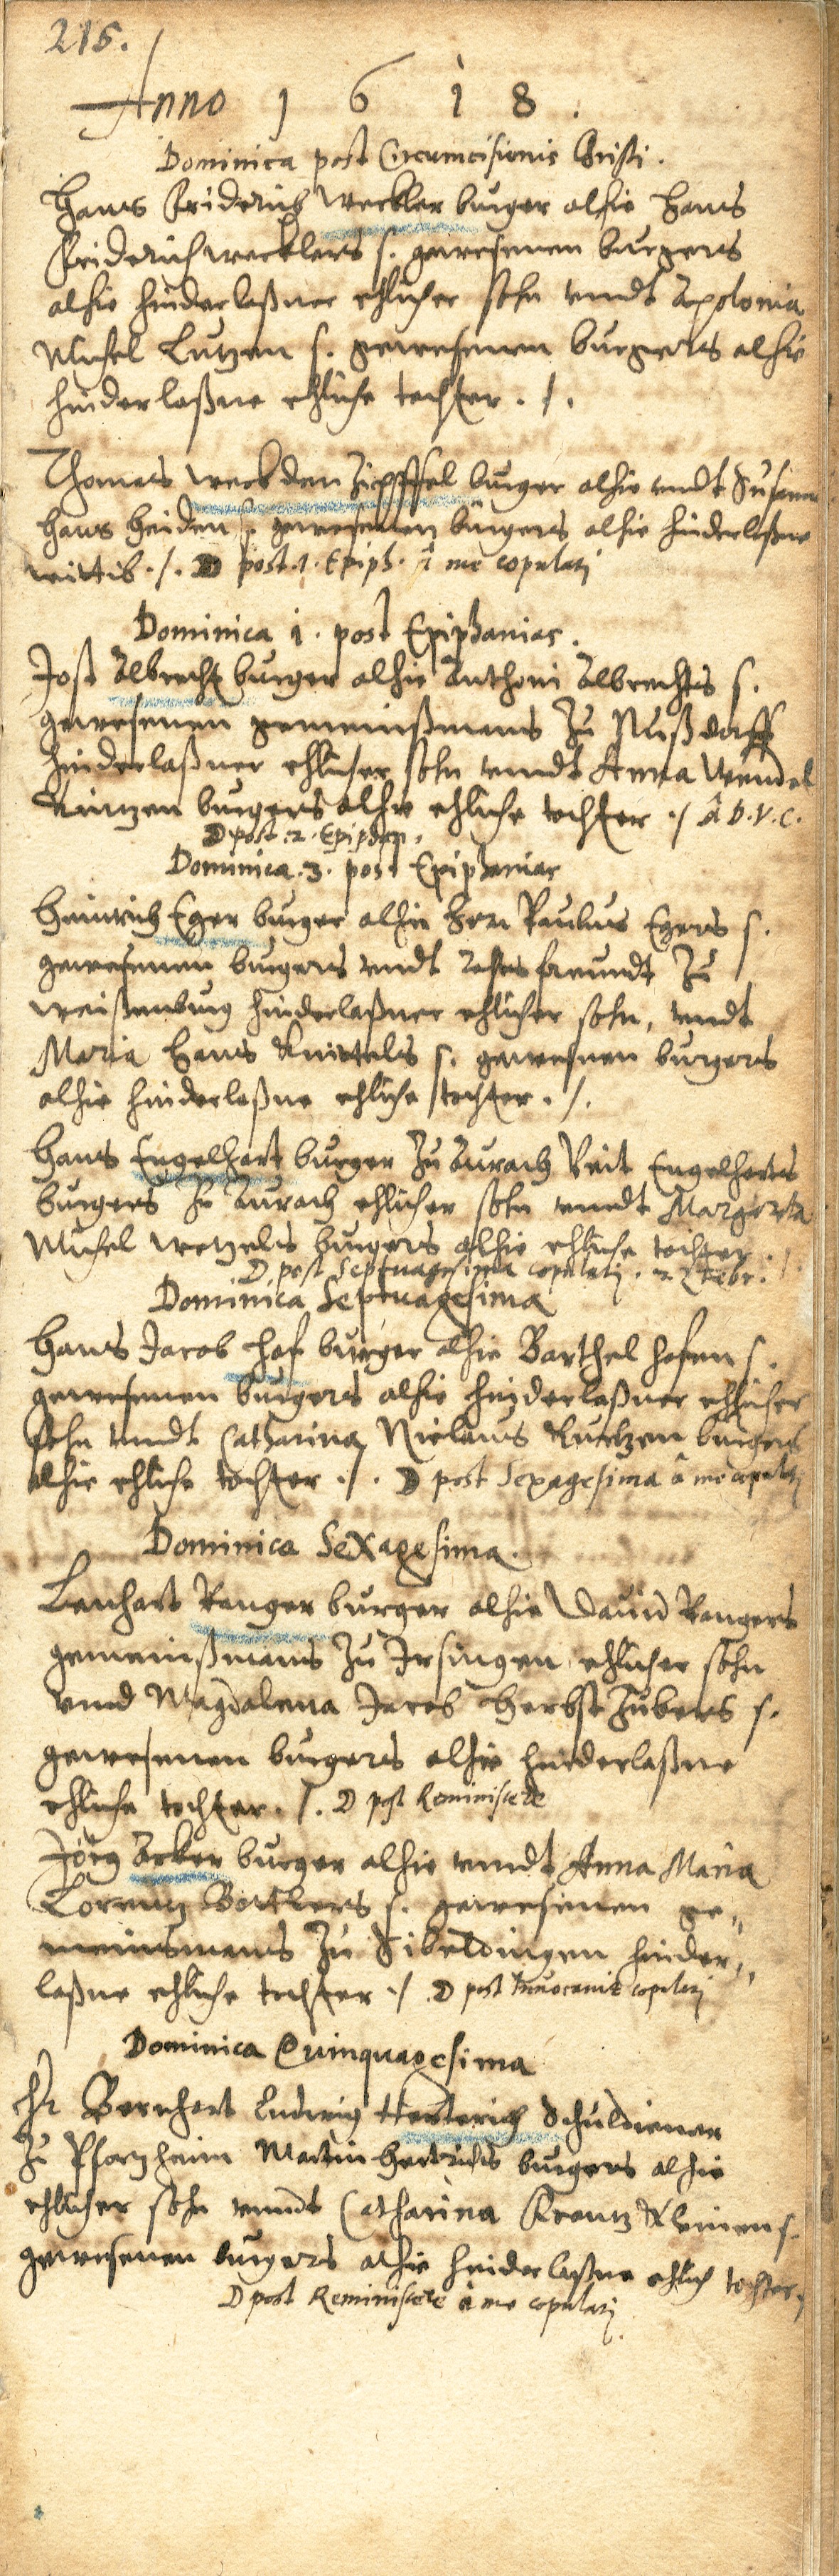 215.
Anno 1 6 1 8.
Dominica post Circumcisionis Christi.
Hans Friderich Weckler burger alhie Hans
Friderich Wecklers s. gewesenen burgers
alhie hinderlaßner ehlicher sohn vndt Apolonia
Michel Lutzen s. gewesenen burgers alhie
hinderlaßne ehliche tochter ./.
Thomas Weck den Zipffel burger alhie vndt Susanna
Hans Heiden s. gewesenen burgers alhie hinderlaßne
wittib ./. D post. 1. Epiph. â me copulati
Dominica 1. post Epiphanias.
Jost Albrecht burger alhie Anthoni Albrechts s.
gewesenen gemeinßmans zu Nußdorff
hinderlaßner ehlicher sohn vnndt Anna Wendel
Kuntzen burgers alhie ehliche tochter ./ â D. V. C.
D post. 2. Epiphan.
Dominica. 3. post Epiphanias
Heinrich Eger burger alhie Herr Paulus Egers s.
gewesenen burgers vndt Rahtsfreundt zu
Weissenburg hinderlaßner ehlicher sohn, vndt
Maria Hans Knittels s. gewesnen burgers
alhie hinderlaßne ehliche tochter ./.
Hans Engelhart burger zu Aurach Veit Engelharts
burgers zu Aurach ehlicher sohn vnndt Margreta
Michel Wetzels burgers alhie ehliche tochter ./
D post Septuagesima copulati. 2 Febr.
Dominica Septuagesima
Hans Jacob Hof burger alhie Barthel Hofen s.
gewesenen burgers alhie hinderlaßner ehlicher
sohn vnndt Catharina Niclaus Kuntzen burgers
alhie ehliche tochter ./. D post Sexagesima â me copulati
Dominica Sexagesima.
Lenhart Ranger burger alhie Dauid Rangers
gemeinßmans zu Insingen ehlicher sohn
vnnd Magdalena Jacob Herbst Zubers s.
gewesenen burgers alhie hinderlaßne
ehliche tochter ./. D post Reminiscere
Jörg Acker burger alhie vnndt Anna Maria
Lorentz Bottlers s. gewesenen ge„
meinsmans zu Sibeldingen hinder„
laßne ehliche tochter ./ D post Invocavit copulati
Dominica Quinquagesima
Hr Bernhart Ludwig Herterich Schuldiener
zu Pfortzheim Martin Hertrichs burgers alhie
ehlicher sohn vnndt Catharina Frantz Kleinen s.
gewesenen burgers alhie hinderlaßne ehlich tochter
D post Reminiscere â me copulati